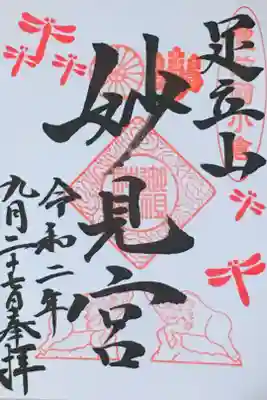 足立山
妙見宮
令和二年
九月二十七日奉拝